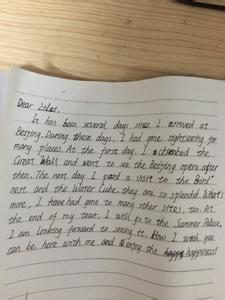 Dear Lilei,
It has been several days since I arrived at
Beijing. During these days, I had gone sightseeing for
many places. At the first day, I climbed the
Great Wall and went to see the Beijing opera after
then. The next day I paid a visit to the Bird'
nest and the Water Cube. they are so splendid. What's
more, I have had gone to many other sites, too. At
the end of my tour, I will go to the Summer Palace,
I am looking forward to seeing it. How I wish you
can be here with me and enjoy the happiness!